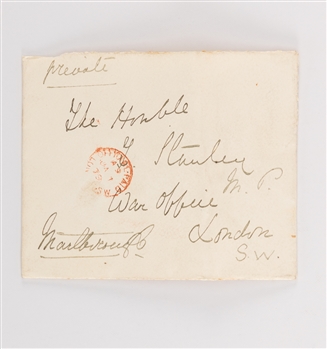 private
The Honble
F Stanley
M.P.
War Office
Marlborough
London
S.W.